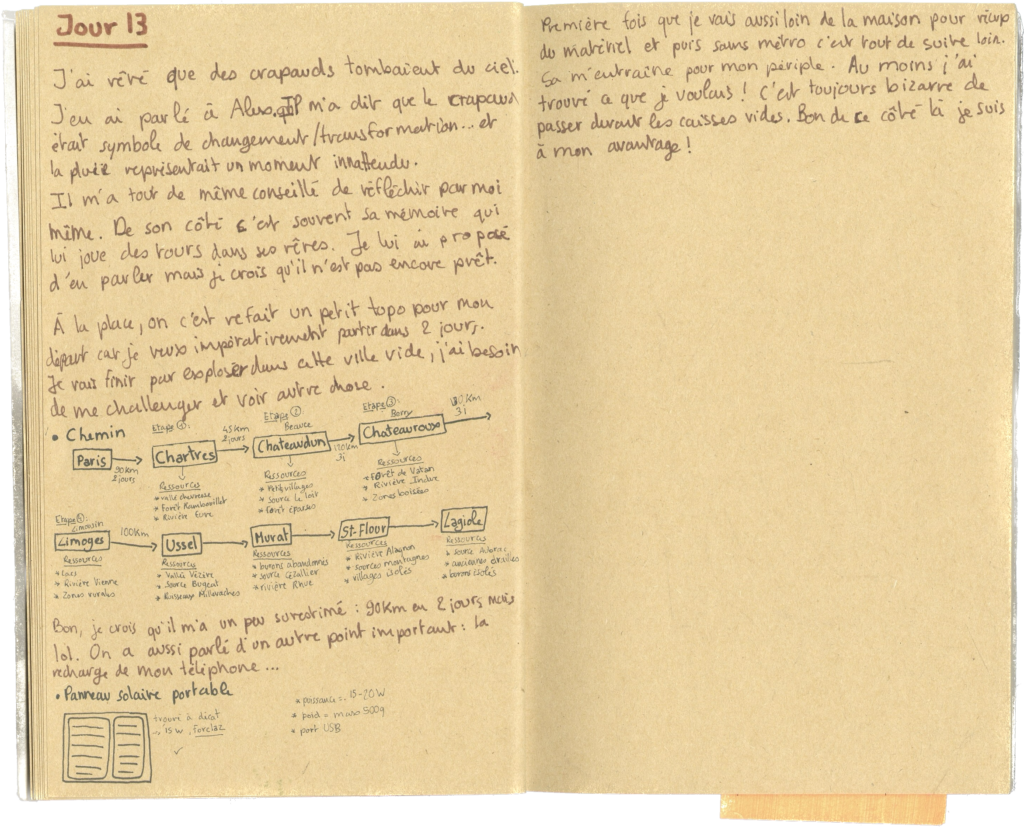 Jour 13
J'ai rêvé que des crapauds tombaient du ciel.
J'en ai parlé à Il m'a dit que le crapaud
était symbole de changement/transformation... et
la pluie représentait un moment innattendu.
Il m'a tout de même conseillé de réfléchir par moi
même. De son côté c'est souvent sa mémoire qui
lui joue des tours dans ses rêves. Je lui ai proposé
d'en parler mais je crois qu'il n'est pas encore prêt.
À la place, on c'est refait un petit topo pour mon
départ car je veux impérativement partir dans 2 jours.
Je vais finir par exploser dans cette ville vide, j'ai besoin
de me challenger et voir autre chose.
• Chemin
Paris
90km
2 jours
Etape 1:
Chartres
Ressources
* vallée chevreuse
* Forêt Rambouillet
* Rivière Eure
45km
2 jours
Etape 2:
Beauce
Chateaudun
Ressources
* Petits villages
* Source le loir
* Forêt éparses
130km
3j
Etape 3:
Berry
Chateauroux
Ressources
* Forêt de Vatan
* Rivière Indre
* Zones boisées
3j
Limousin
Limoges
Ressources
* Lacs
* Rivière Vienne
* Zones rurales
100km
Ussel
Ressources
* Vallée Vézère
* Source Bugeat
* Ruisseaux Millevaches
Murat
Ressources
* burons abandonnés
* source Cézallier
* rivière Rhue
St-Flour
Ressources
* Rivière Alagnon
* sources montagnes
* villages isolés
Lagiole
Ressources
* source Aubrac
* anciennes
* burons isolés
Bon, je crois qu'il m'a un peu surestimé : 90km en 2 jours mais
lol. On a aussi parlé d'un autre point important : la
recharge de mon téléphone...
• Panneau solaire portable
trouvé à décat
15 W, Forclaz
* puissance = 15-20W
* poid = maxo 500g
* port USB
Première fois que je vais aussi loin de la maison pour récup
du matériel et puis sans métro c'est tout de suite loin.
Sa m'entraine pour mon périple. Au moins j'ai
trouvé ce que je voulais ! C'est toujours bizarre de
passer devant les caisses vides. Bon de ce côté là je suis
à mon avantage !